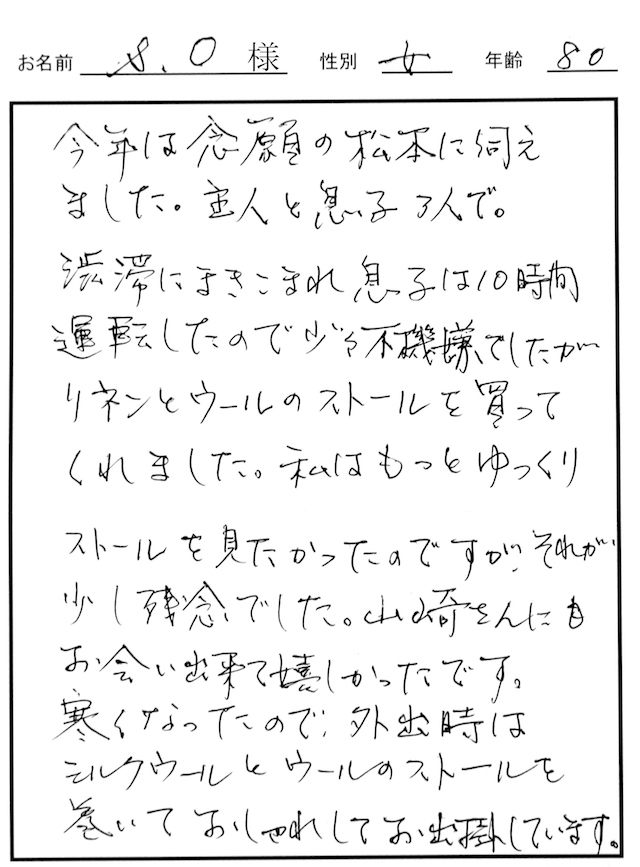 お名前 S.O 様 性別 女 年齢 80
今年は念願の松本に伺え
ました。主人と息子3人で。
渋滞にまきこまれ息子は10時間
運転したので少々不機嫌でしたが
リネンとウールのストールを買って
くれました。私はもっとゆっくり
ストールを見たかったのですが、それが
少し残念でした。山崎さんにも
お会い出来て嬉しかったです。
寒くなったので、外出時は
シルクウールとウールのストールを
巻いておしゃれしてお出掛しています。